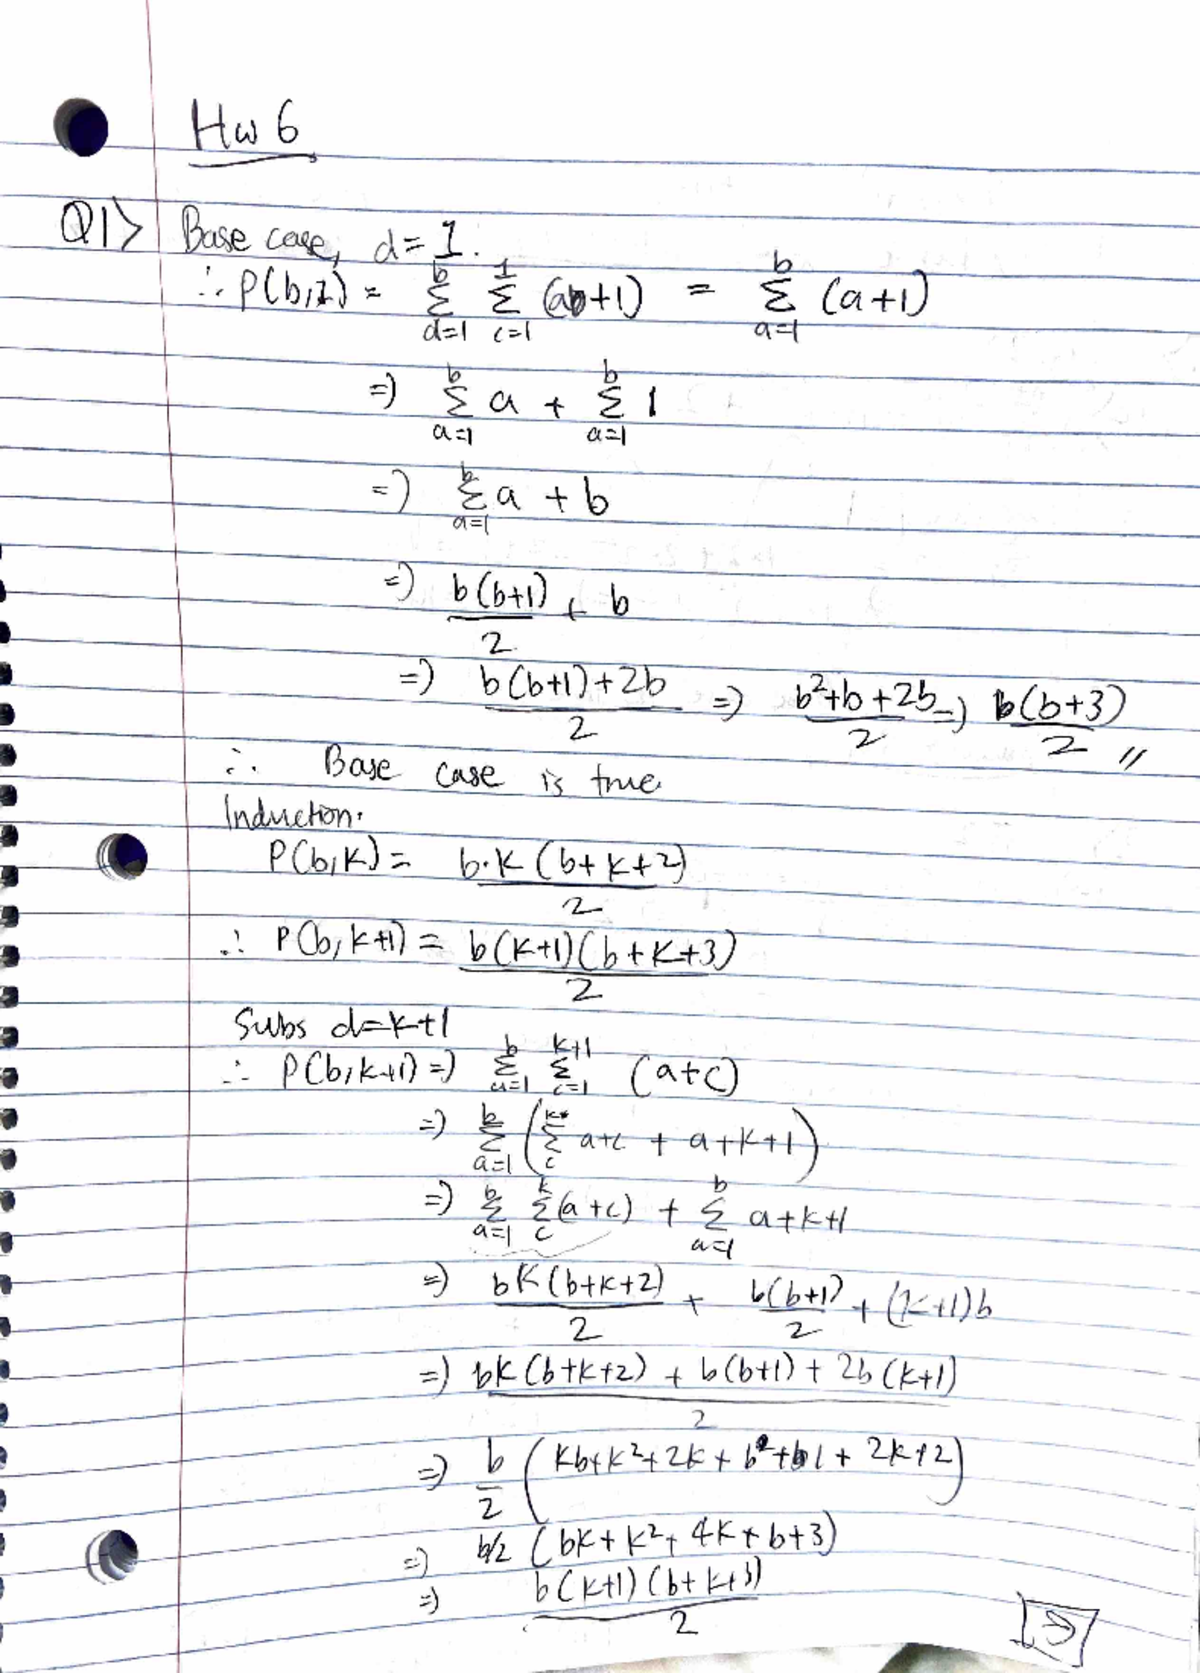 Hw 6
Q1> Base case, d = 1.
∴ P(b,1) = b∑d=1 1∑c=1 (a+1) = b∑a=1 (a+1)
=) b∑a=1 a + b∑a=1 1
=) b∑a=1 a + b
=) b(b+1)/2 + b
=) b(b+1)+2b/2 =) b²+b+2b/2 =) b(b+3)/2 //
∴ Base case is true.
Induction:
P(b,k) = b·k(b+k+2)/2
∴ P(b,k+1) = b(k+1)(b+k+3)/2
Subs d=k+1
∴ P(b,k+1) =) b∑a=1 k+1∑c=1 (a+c)
=) b∑a=1 (k∑c a+c + a+k+1)
=) b∑a=1 k∑c (a+c) + b∑a=1 a+k+1
=) bk(b+k+2)/2 + b(b+1)/2 + (k+1)b
=) bk(b+k+2) + b(b+1) + 2b(k+1)/2
=) b/2 (kb+k²+2k+b+1+2k+2)
=) b/2 (bk+k²+4k+b+3)
=) b(k+1)(b+k+3)/2
→